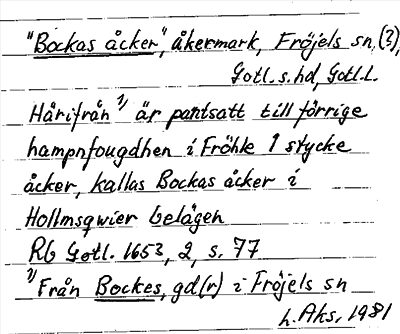 "Bockas åcker", åkermark, Fröjels sn, (?),
Gotl. s. hd, Gotl. L.
Härifrån 1) är pantsatt till förrige
hampnfougdhen i Fröhle 1 stycke
åcker, kallas Bockas åcker i
Hollmsqwier belägen
Rb Gotl. 1653, 2, s. 77
1) Från Bockes, gd(r) i Fröjels sn
h. Aks. 1981